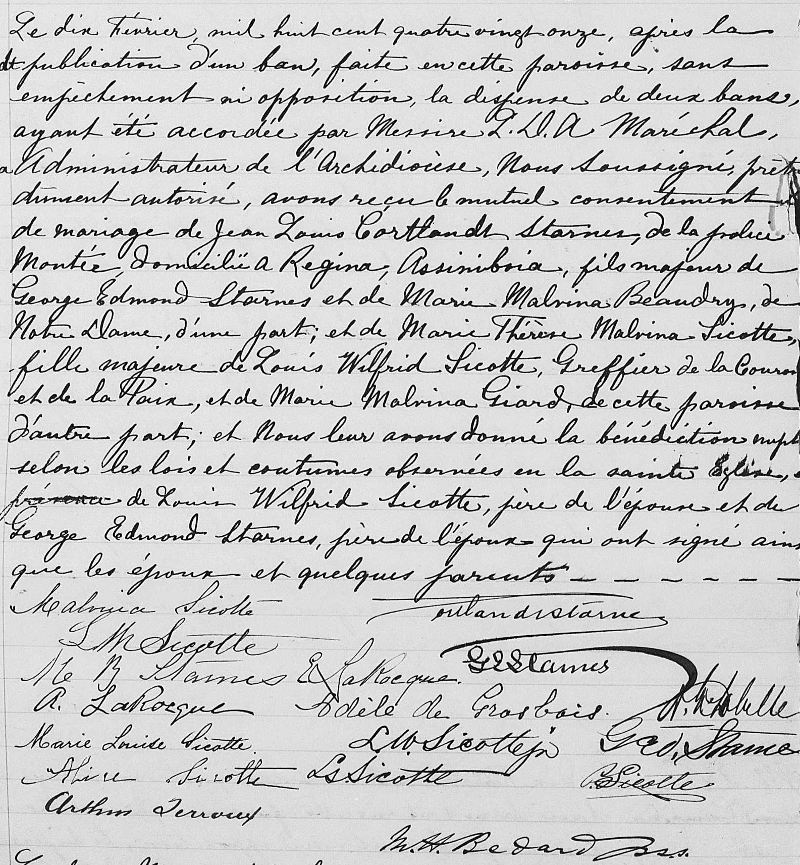 Le dix Février, mil huit cent quatre vingt onze, après la
publication d'un ban, faite en cette paroisse, sans
empêchement ni opposition, la dispense de deux bans,
ayant été accordée par Messire L.D.A Maréchal,
Administrateur de l'Archidiocèse, Nous soussigné, prêt
dûment autorisé, avons reçu le mutuel consentement
de mariage de Jean Louis Cortlandt Starnes, de la police
Montée, domicilié à Regina, Assiniboia, fils majeur de
George Edmond Starnes et de Marie Malvina Beaudry, de
Notre Dame, d'une part; et de Marie Thérèse Malvina Sicotte,
fille majeure de Louis Wilfrid Sicotte, Greffier de la Couron
et de la Paix, et de Marie Malvina Giard, de cette paroisse
d'autre part; et Nous leur avons donné la bénédiction nupt
selon les lois et coutumes observées en la sainte Eglise,
présence de Louis Wilfrid Sicotte, père de l'épouse et de
George Edmond Starnes, père de l'époux qui ont signé ains
que les époux et quelques parents
Malvina Sicotte Cortlandt Starnes
Sicotte
G E Starnes
M B Starnes E LaRocque.
A. LaRocque Adèle de Grosbois.
Marie Louise Sicotte. L.W. Sicotte jr Geo. Starnes
Alice Sicotte Ls. Sicotte Sicotte
Arthur Terroux
M.H. Bedard